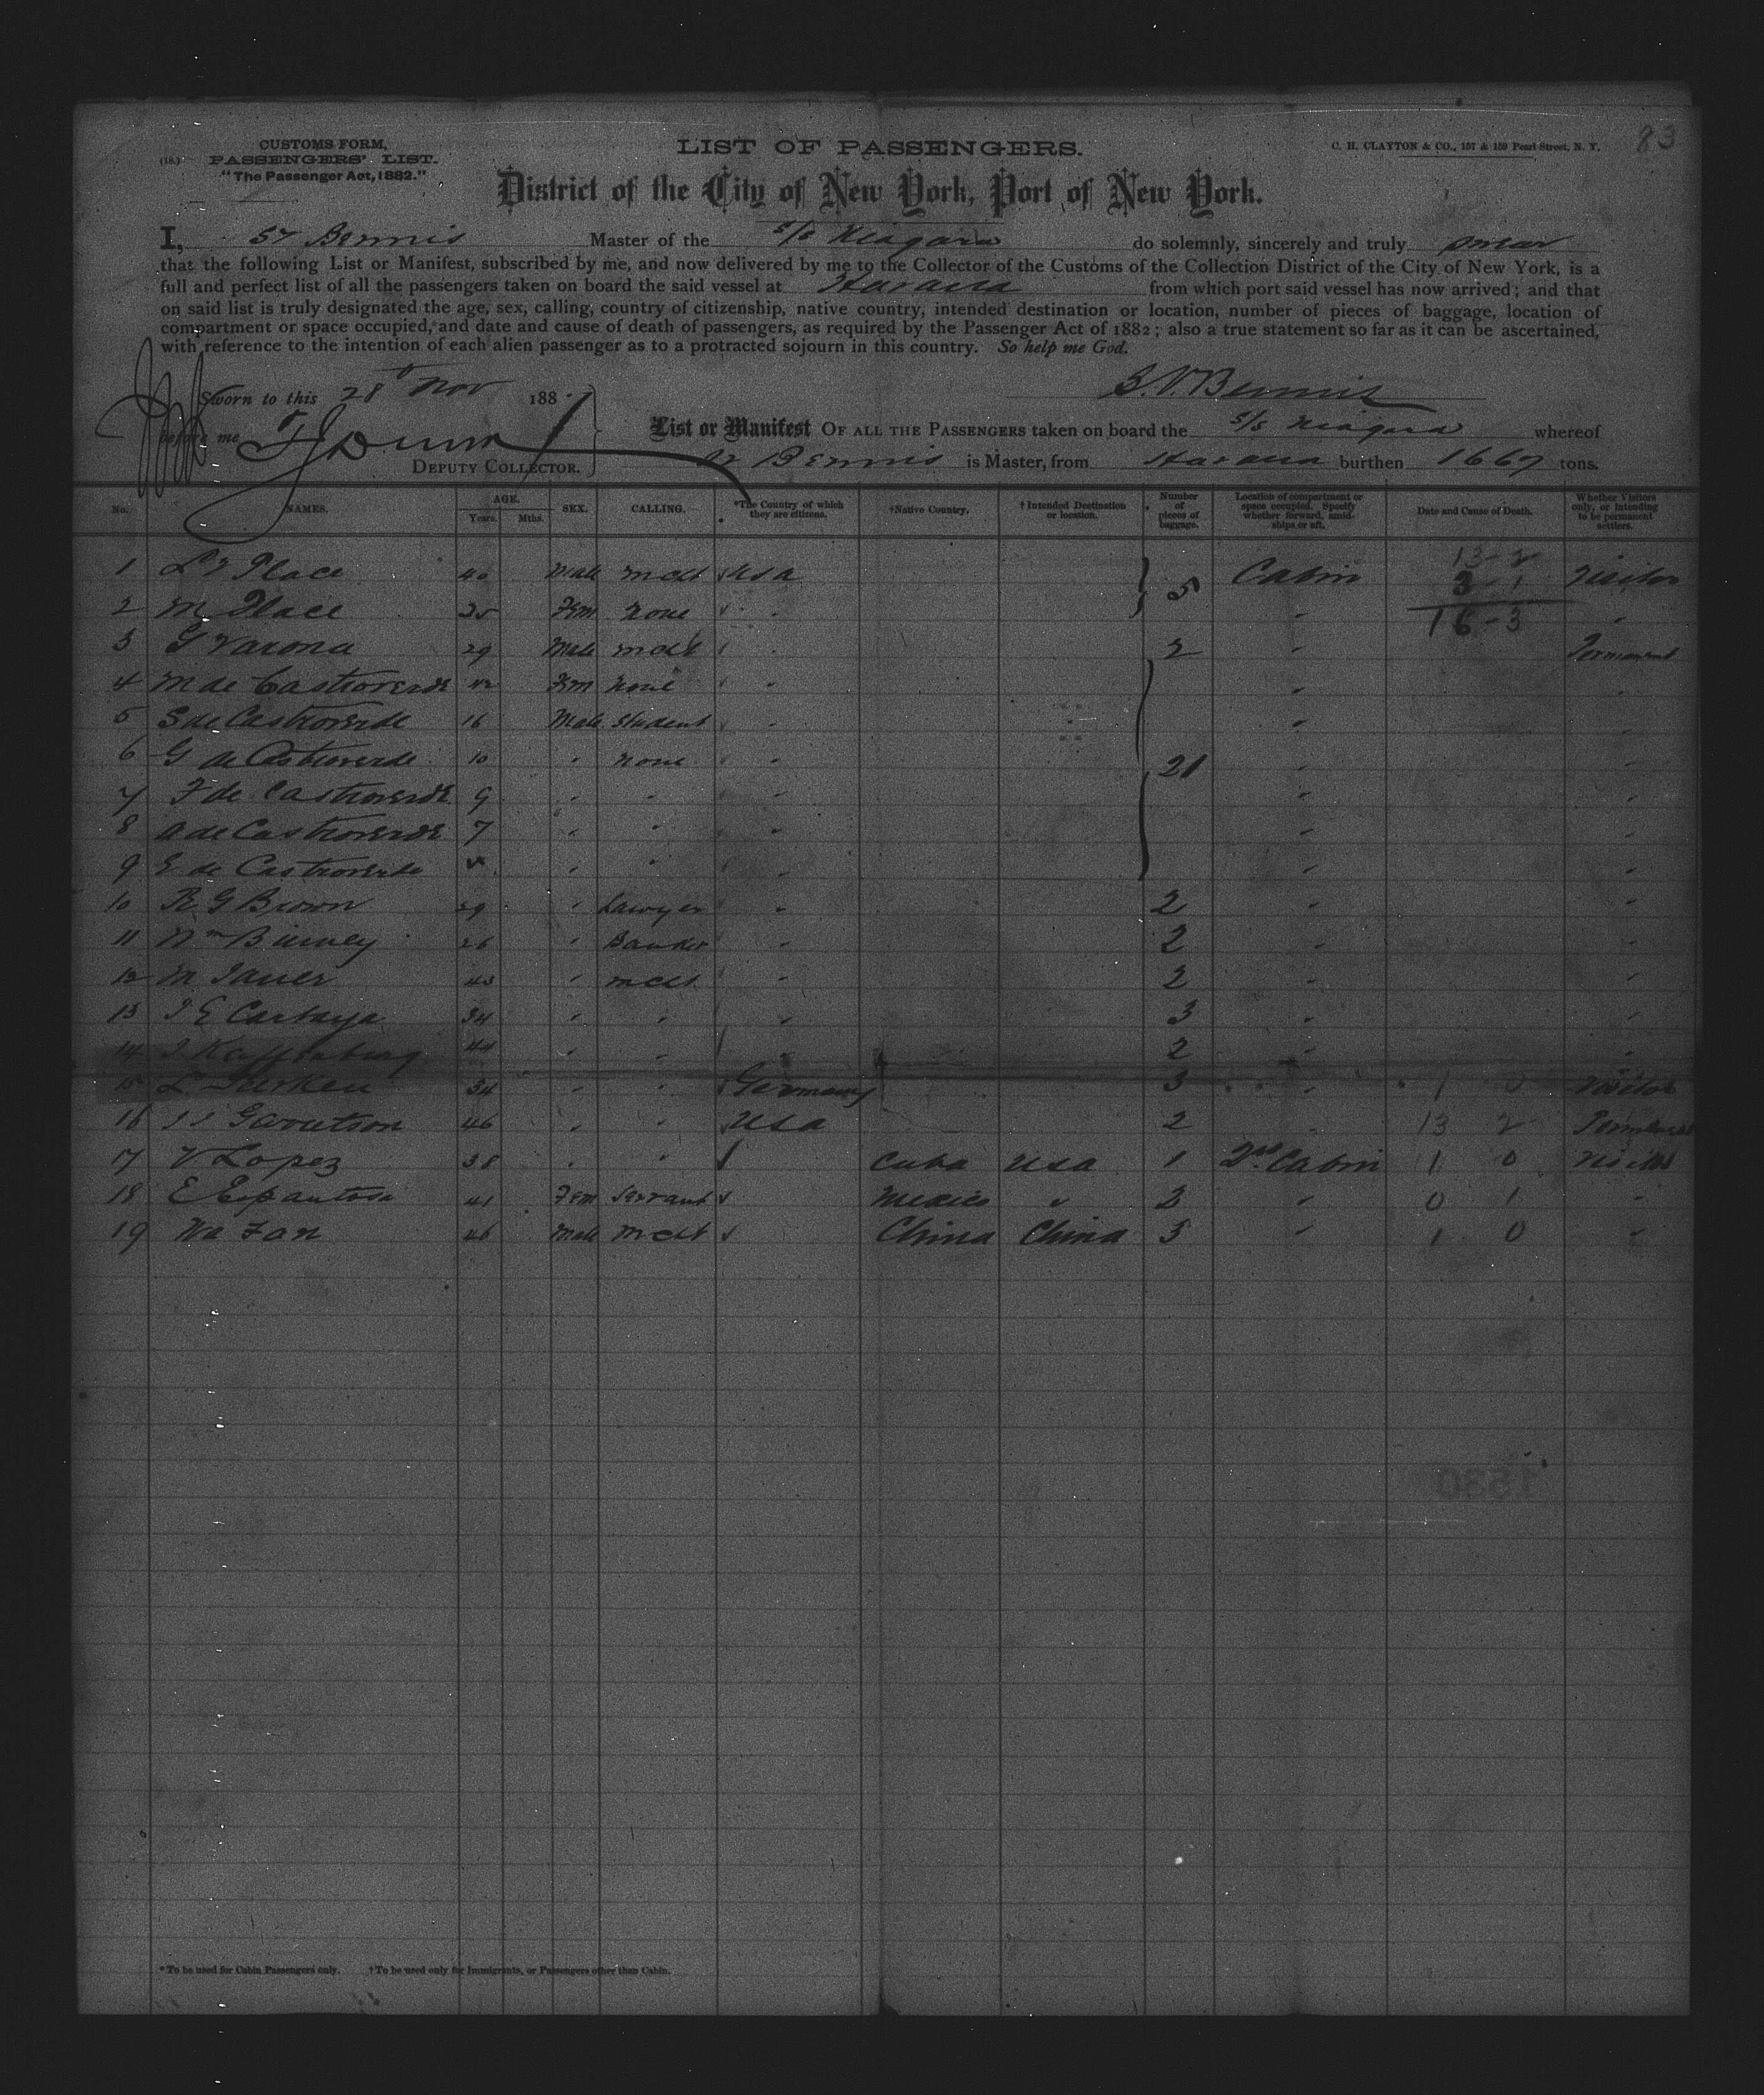 83
CUSTOMS FORM,
(18.) PASSENGERS' LIST.
"The Passenger Act, 1882."
LIST OF PASSENGERS.
C. H. CLAYTON & CO., 157 & 159 Pearl Street, N. Y.
District of the City of New York, Port of New York.
I, Bennis Master of the S/S Niagara do solemnly, sincerely and truly swear
that the following List or Manifest, subscribed by me, and now delivered by me to the Collector of the Customs of the Collection District of the City of New York, is a
full and perfect list of all the passengers taken on board the said vessel at Havana from which port said vessel has now arrived; and that
on said list is truly designated the age, sex, calling, country of citizenship, native country, intended destination or location, number of pieces of baggage, location of
compartment or space occupied, and date and cause of death of passengers, as required by the Passenger Act of 1882; also a true statement so far as it can be ascertained,
with reference to the intention of each alien passenger as to a protracted sojourn in this country. So help me God.
Sworn to this 28 Nov 188
Bennis
before me
DEPUTY COLLECTOR.
List or Manifest OF ALL THE PASSENGERS taken on board the S/S Niagara whereof
Bennis is Master, from Havana burthen 1667 tons.
No. NAMES. AGE. Years. Mths. SEX. CALLING. *The Country of which they are citizens. †Native Country. †Intended Destination or location. Number of pieces of baggage. Location of compartment or space occupied. Specify whether forward, amidships, or aft. Date and Cause of Death. Whether Visitors only, or intending to be permanent settlers.
13-2
1 Place 40 Male mcht USA 5 Cabin 3 1 Visitor
2 M Place 35 Fem none " " 16-3 "
3 G Varona 29 Male mcht " 2 " Permanent
4 M de Castroverde 42 Fem none " " "
5 S de Castroverde 16 Male Student " " "
6 G de Castroverde 10 " none " 21 " "
7 F de Castroverde 9 " " " " "
8 A de Castroverde 7 " " " " "
9 E de Castroverde " " " " "
10 R G Brown 29 " Lawyer " 2 " "
11 Wm Binney 26 " Banker " 2 " "
12 M 43 " mcht " 2 " "
13 Cartaya 34 " " " 3 " "
14 Kaffenburg 44 " " " 2 " "
15 L 34 " " Germany 3 " 1 0 Visitor
16 Garretson 46 " " USA 2 " 13 2 Permanent
17 V Lopez 38 " " Cuba USA 1 2nd Cabin 1 0 Visitor
18 E Espantosa 41 Fem Servant Mexico " 2 " 0 1 "
19 Wa Fan 46 Male mcht China China 3 " 1 0 "
1530
*To be used for Cabin Passengers only. †To be used only for Immigrants, or Passengers other than Cabin.